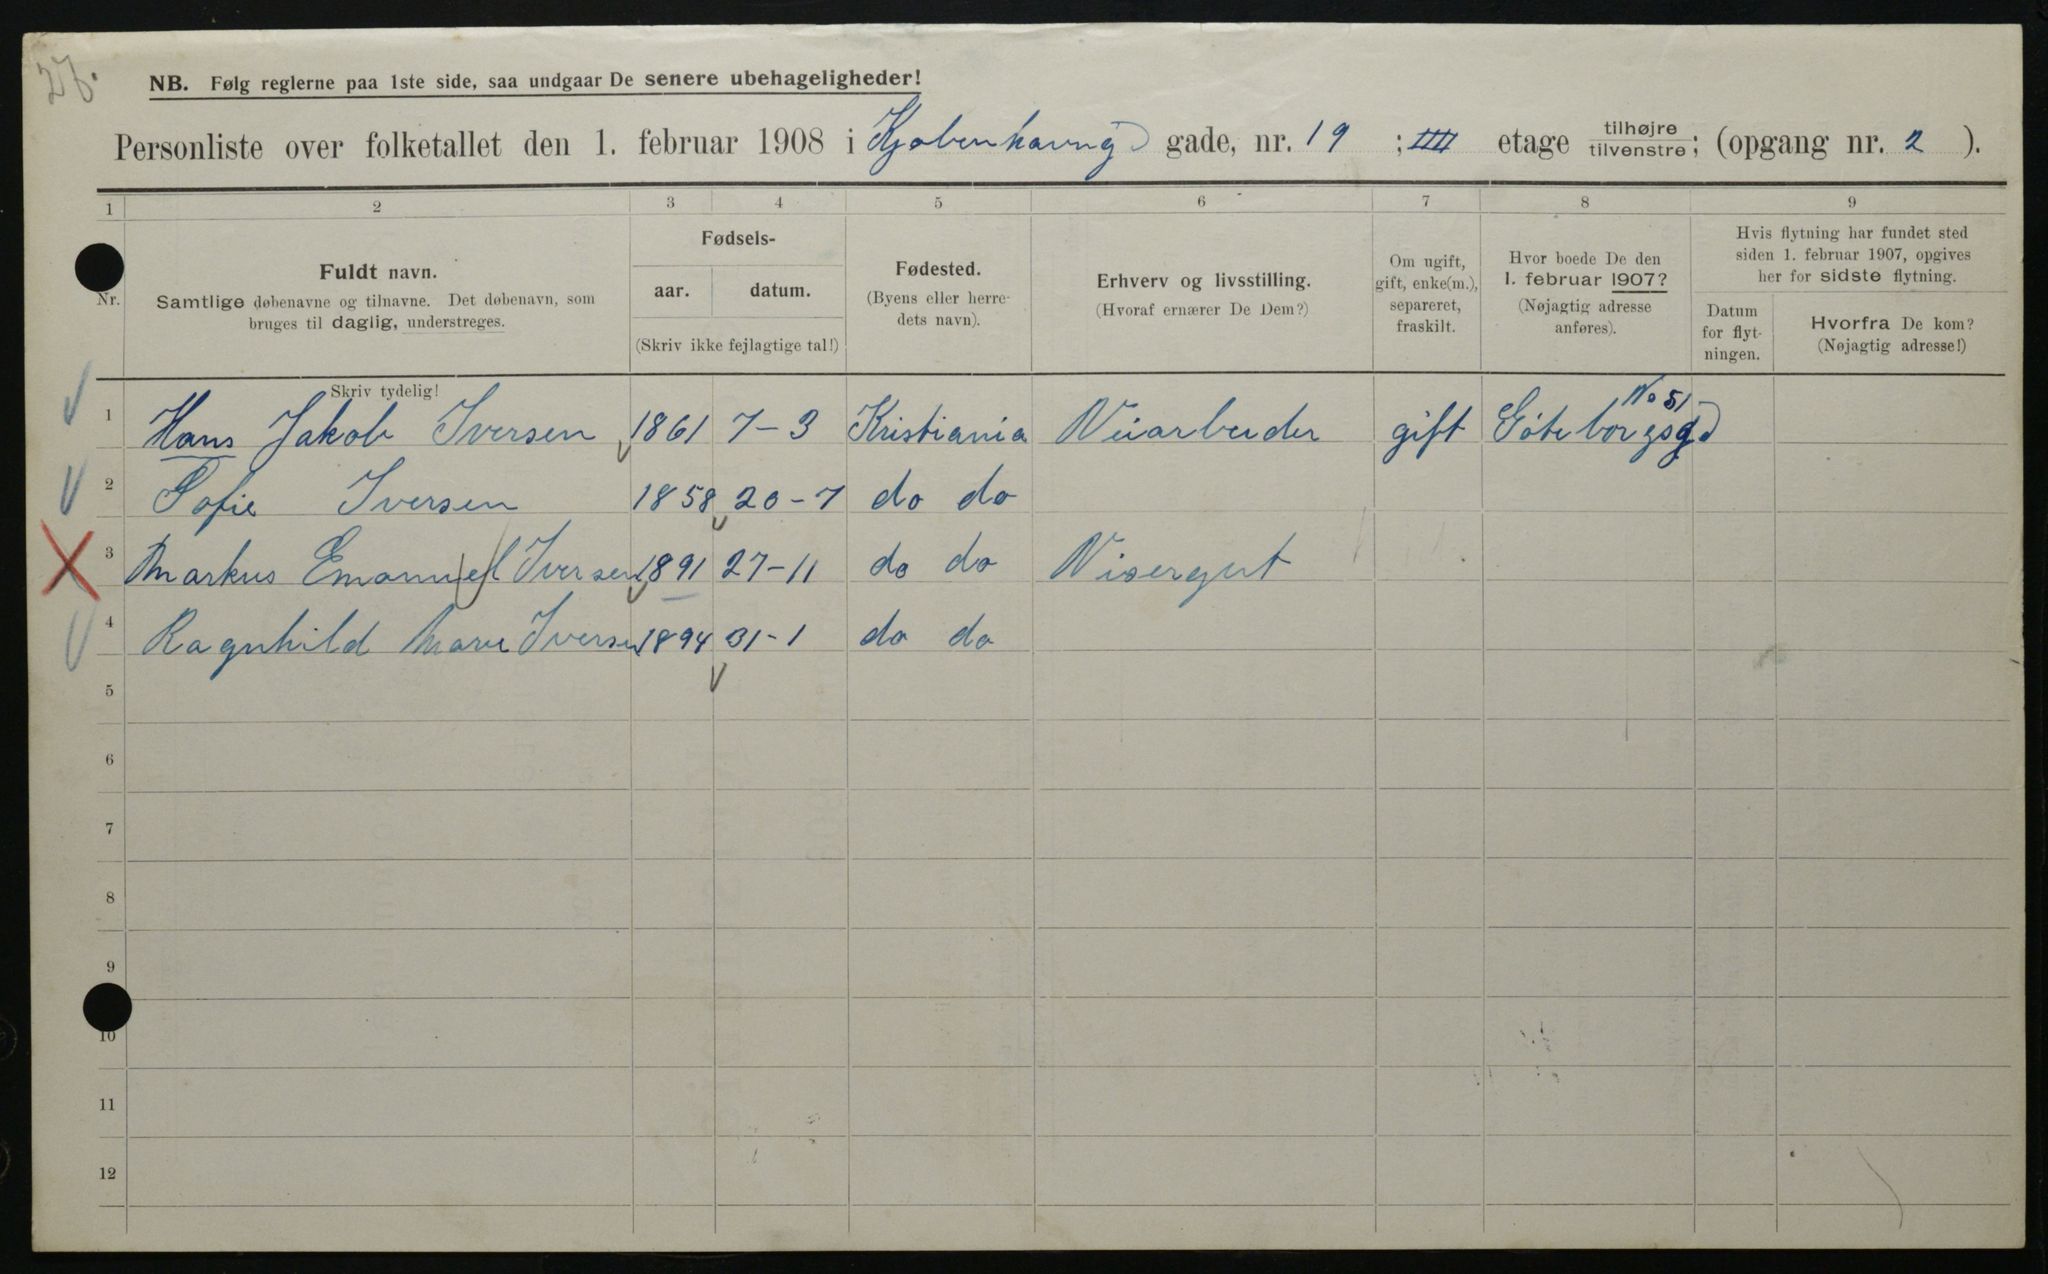 27.
NB. Følg reglerne paa 1ste side, saa undgaar De senere ubehageligheder!
Personliste over folketallet den 1. februar 1908 i Kjøbenhavnsgd gade, nr. 19 ; IIII etage tilhøjre tilvenstre; (opgang nr. 2 ).
1 2 3 4 5 6 7 8 9
Nr.
Fuldt navn.
Samtlige døbenavne og tilnavne. Det døbenavn, som
bruges til daglig, understreges.
Skriv tydelig!
Fødsels-
aar. datum.
(Skriv ikke fejlagtige tal!)
Fødested.
(Byens eller herre-
dets navn).
Erhverv og livsstilling.
(Hvoraf ernærer De Dem?)
Om ugift,
gift, enke(m.),
separeret,
fraskilt.
Hvor boede De den
1. februar 1907?
(Nøjagtig adresse
anføres).
Hvis flytning har fundet sted
siden 1. februar 1907, opgives
her for sidste flytning.
Datum
for flyt-
ningen.
Hvorfra De kom?
(Nøjagtig adresse!)
1 Hans Jakob Iversen 1861 7-3 Kristiania Veiarbeider gift Göteborgsgd No 51
2 Sofie Iversen 1858 20-7 do do
3 Markus Emanuel Iversen 1891 27-11 do do Visergut
4 Ragnhild Marie Iversen 1894 31-1 do do
5
6
7
8
9
10
11
12